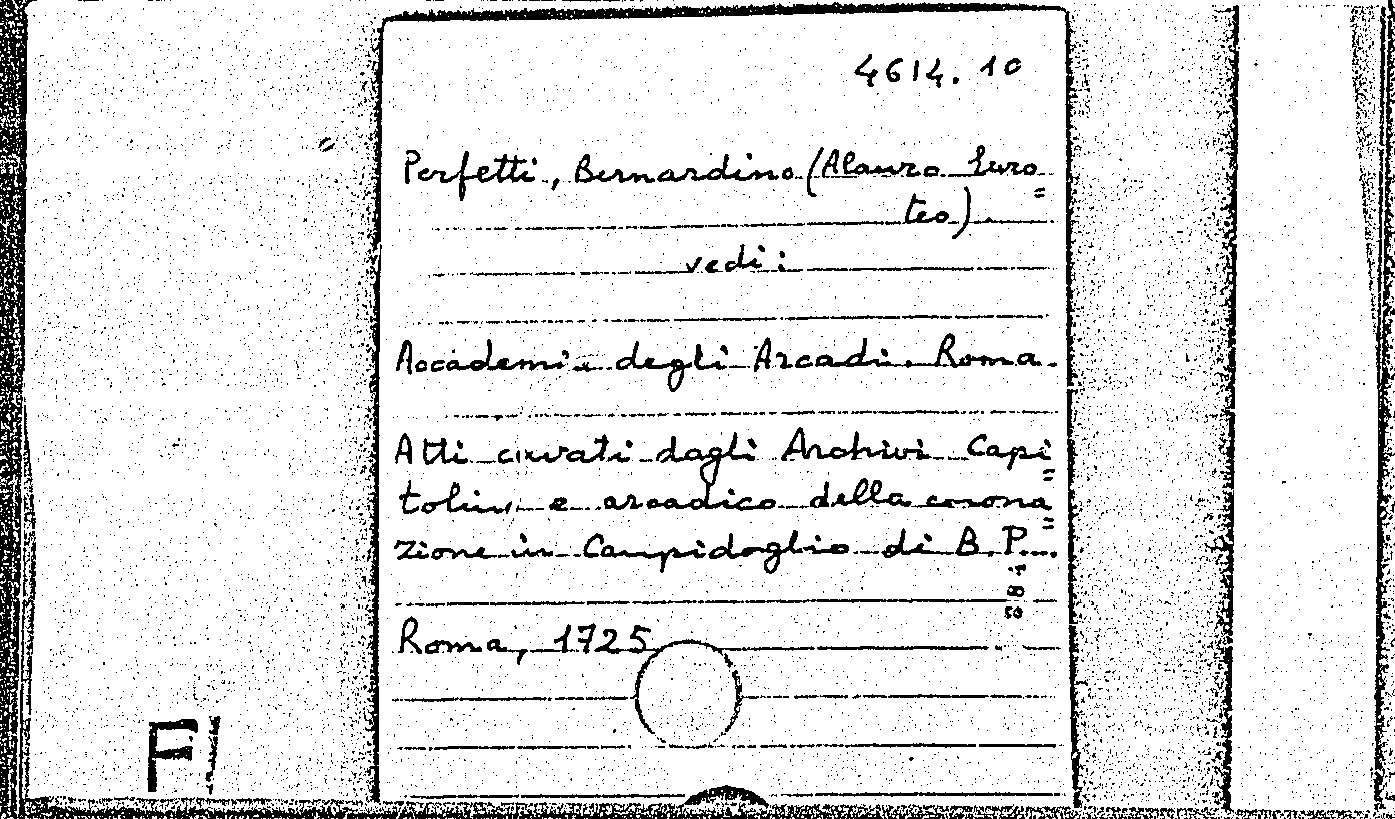 4614.10
Perfetti, Bernardino (Alauro Euro=
teo).
vedi:
Accademia degli Arcadi. Roma.
Atti cavati dagli Archivi Capi=
tolino e arcadico della corona=
zione in Campidoglio di B.P....
Roma, 1725